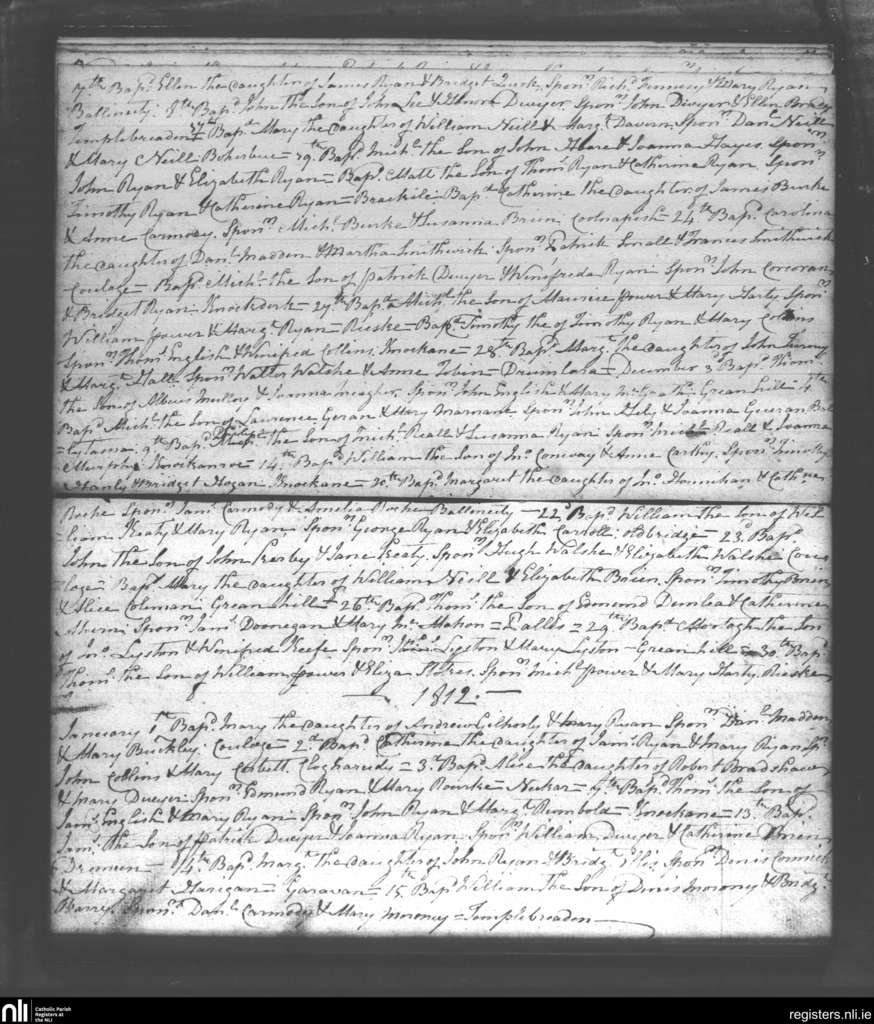 7th Bapd Ellen the daughter of James Ryan & Bridget Quirk, Sponrs Richd & Mary Ryan
Ballineity. 8th Bapd John the Son of John Lee & Honor Dwyer, Sponrs John Dwyer & Ellen
Templebreadon = Bapd Mary the daughter of William Neill & Margt Davern. Sponrs Danl Neill
& Mary Neill = 19th Bapd Michl the Son of John Hoare & Joanna Hayes. Sponrs
John Ryan & Elizabeth Ryan = Bapd Matt the Son of Thoms Ryan & Catherine Ryan. Sponrs
Timothy Ryan & Catherine Ryan = Brackile. Bapd Catherine the daughter of James Burke
& Anne Carmody. Sponrs Michl Burke & Susanna Brien Coolnapish = 24th Bapd Carolina
the daughter of Danl Madden & Martha Smithwick Sponrs Patrick & Frances Smithwick
Coulage = Bapd Michl the Son of Patrick Dwyer & Winefreda Ryan Sponrs John Corcoran
& Bridget Ryan. Knockderk = 27th Bapd Michl the Son of Maurice Power & Mary Harty Sponrs
William Power & Margt Ryan = Rieske = Bapd Timothy the of Timothy Ryan & Mary Collins
Sponrs Thoms English & Winifred Collins. Knockane = 28th Bapd Margt The daughter of John
& Margt Hall Sponrs Walter Walshe & Anne Tobin = Drumlara = December 3d Bapd Thoms
the Son of & Joanna Meagher. Sponrs John English & Mary McGrath, Grean hill = 4th
Bapd Michl the Son of Laurence Geran & Mary Sponrs John & Joanna Gueran Bal
= 9th Bapd the Son of Michl Reall & Susanna Ryan Sponrs Michl Reall & Joanna
Murphy Knockanroe = 14th Bapd William the Son of Jno Conway & Anne Carthy. Sponrs Timothy
Hanly & Bridget Hogan Knockane = 20th Bapd Margaret the daughter of Jno Hounihan & Cathne
Roche Sponrs Jams Carmody & Amelia Roche Ballineity = 22d Bapd William the Son of Wil-
liam Keaty & Mary Ryan, Sponrs George Ryan & Elizabeth Carroll. Oldbridge = 23d Bapd
John the Son of John Kerby & Jane Keaty. Sponrs Hugh Walshe & Elizabeth Walshe Cou=
lage = Bapd Mary the daughter of William Neill & Elizabeth Brien. Sponrs Timothy Brien
& Alice Coleman Grean hill = 26th Bapd Thoms the Son of Edmond & Catherine
Ahern Sponrs Jams Doonegan & Mary McMahon = Pallis = 29th Bapd Mortogh the Son
of Jno Lyston & Winefred Keefe Sponrs Lyston & Mary Lyston = Grean hill = 30th Bapd
Thoms the Son of William Power & Eliza Sponrs Michl Power & Mary Harty Rieske
1812.
January 1st Bapd Mary the daughter of Andrew Gilhooly & Mary Ryan Sponrs Danl Madden
& Mary Buckley Coulage = 2d Bapd Catherine the daughter of Jams Ryan & Mary Ryan Sprs
John Collins & Mary Corbett. = 3d Bapd Alice the daughter of Robert Bradshaw
& Mary Dwyer Sponrs Edmund Ryan & Mary Rourke = Nickar = 9th Bapd Thoms the Son of
Jams English & Mary Ryan Sponrs John Ryan & Margt Rumbold = Knockane = 13th Bapd
Jams the Son of Patrick Dwyer & Joanna Ryan Sponrs William Dwyer & Catherine Brien
= 14th Bapd Margt The daughter of John Ryan & Bridgt Sponrs Denis Cormick
& Margaret Hanigan = Garavan = 15th Bapd William the Son of Denis Moroney & Bridgt
Barry. Sponrs Danl Carmody & Mary Moroney = Templebreadon
nli
Catholic Parish
Registers at
the NLI
registers.nli.ie